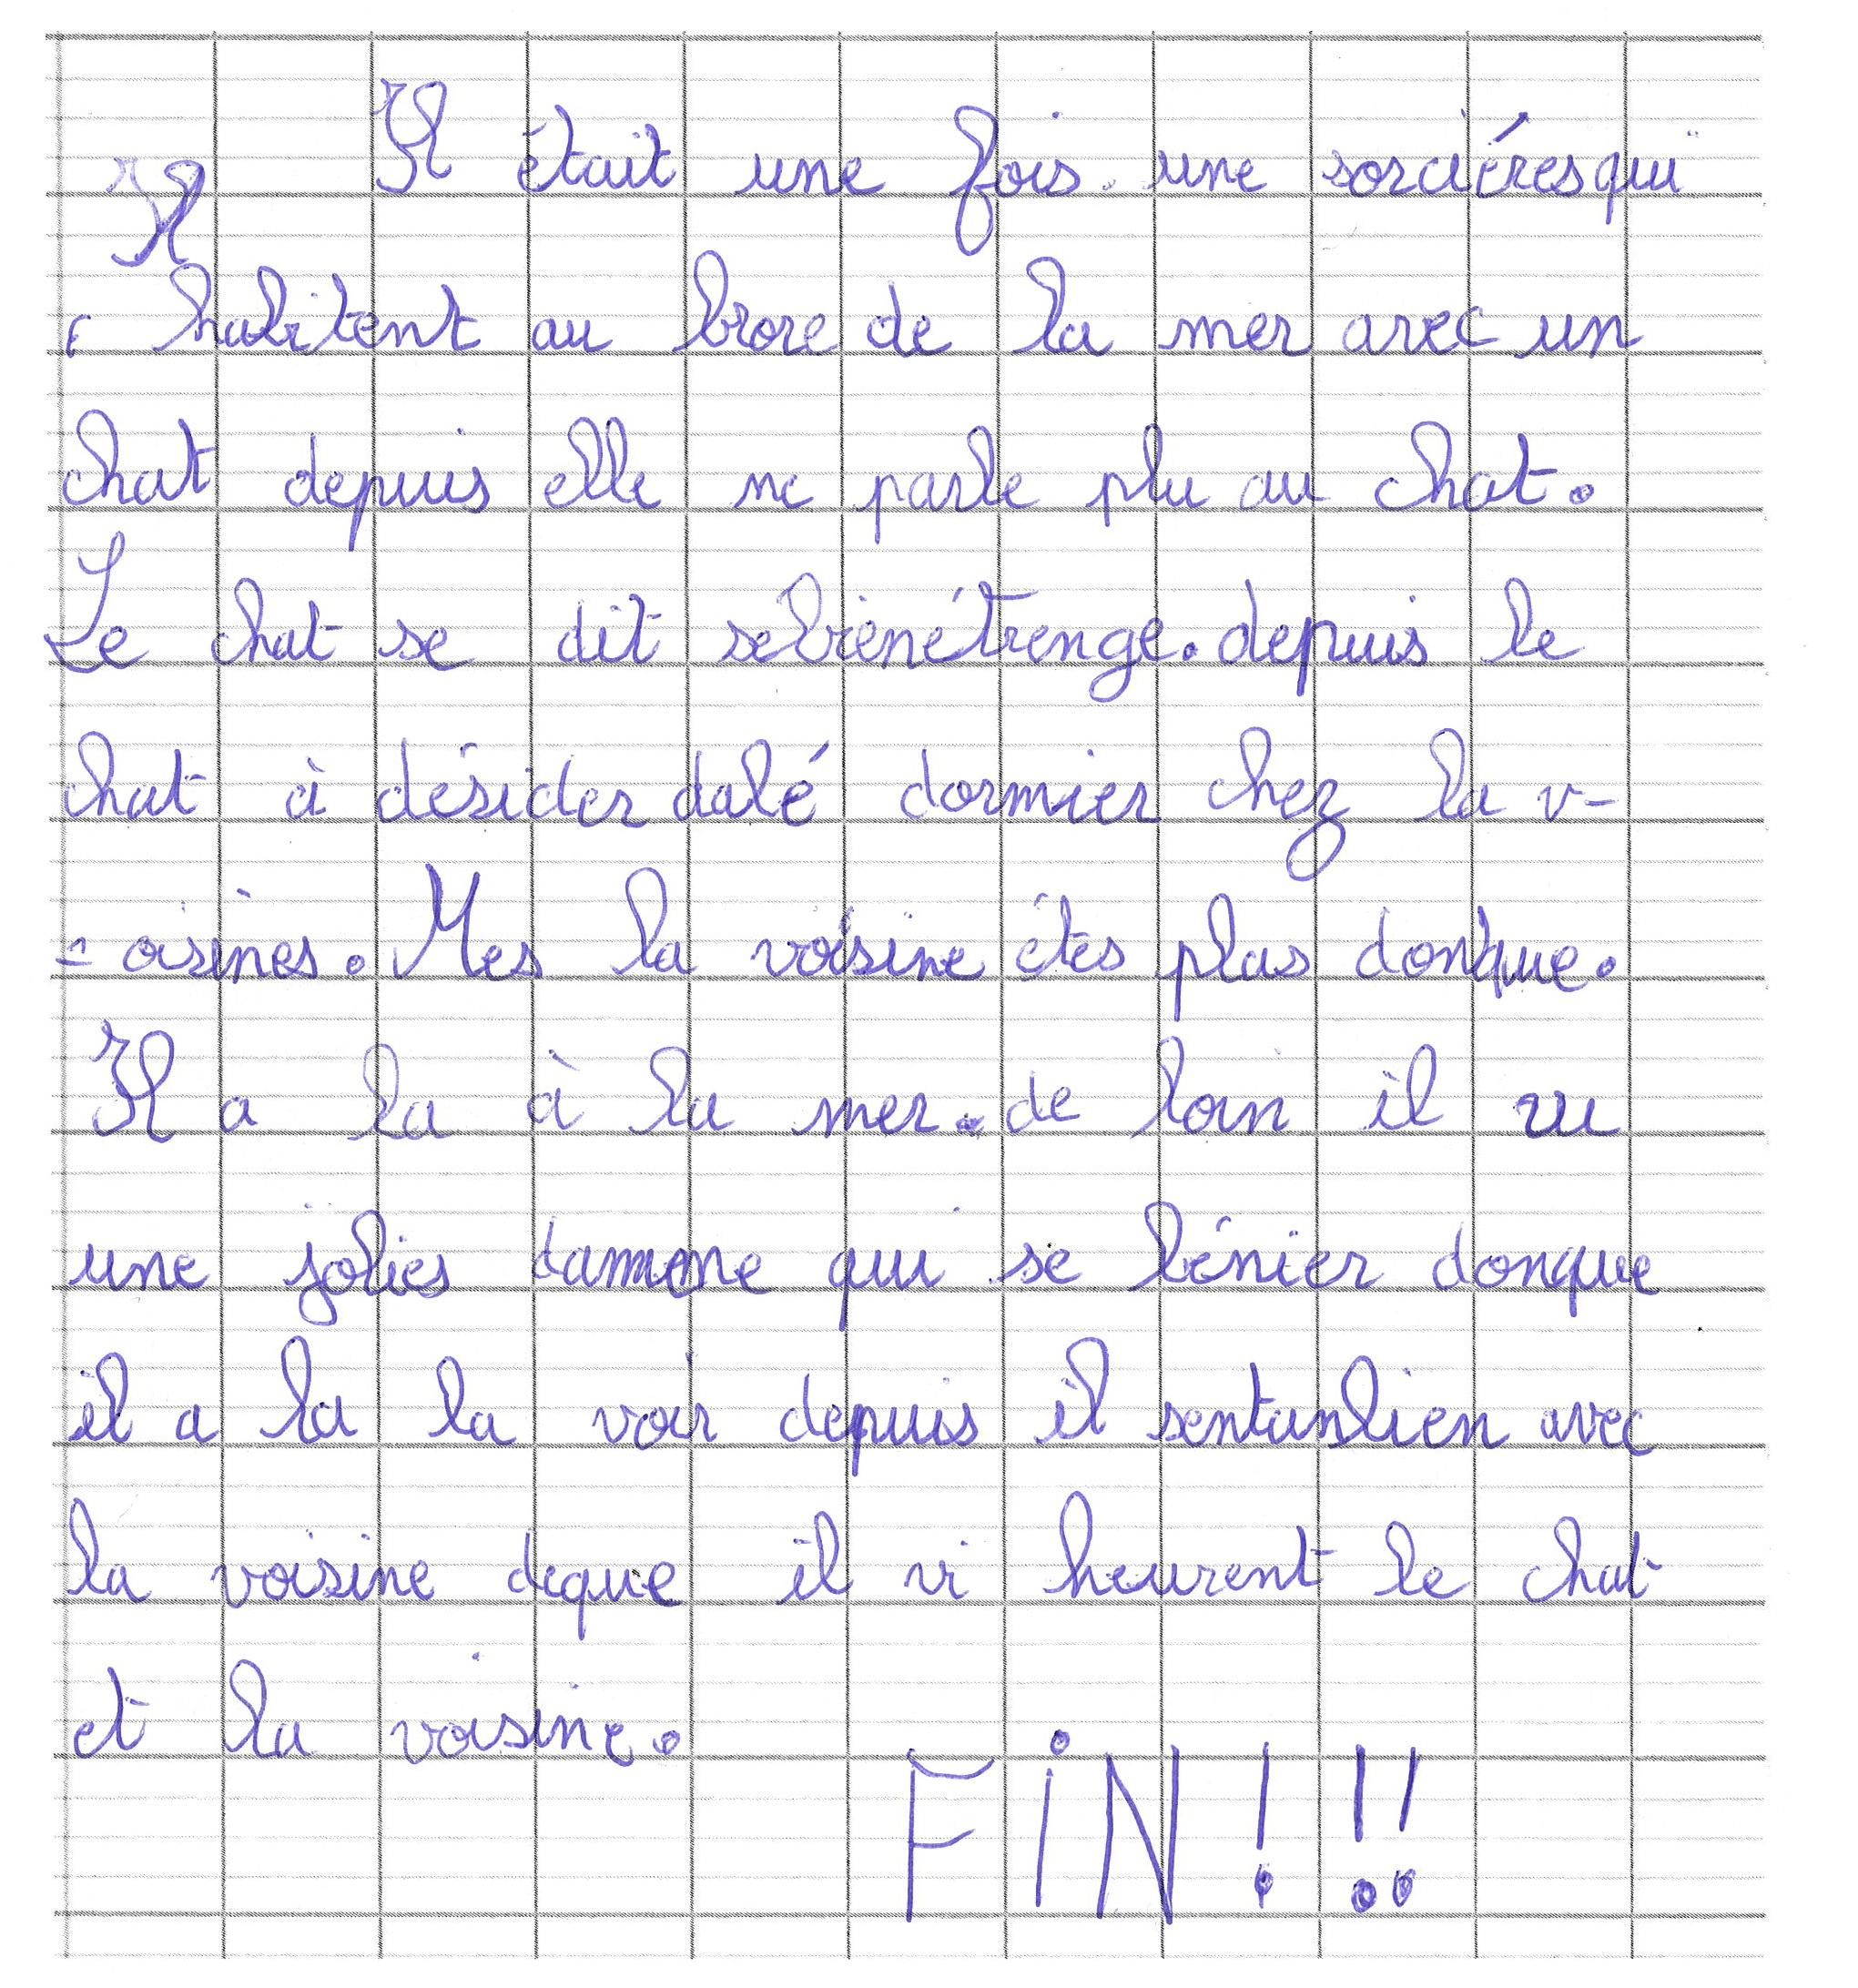 Il était une fois une sorciéres qui
Il
habitent au brore de la mer avec un
chat depuis elle ne parle plu au chat.
Le chat se dit sebienétrenge. depuis le
chat à désider dalé dormier chez la v-
- oisines. Mes la voisine étes plas donque.
Il a la à la mer. de loin il vu
une jolies damme qui se bénier donque
il a la la voir depuis il sentanlien avec
la voisine deque il vi heurent le chat
et la voisine.
FIN !!!